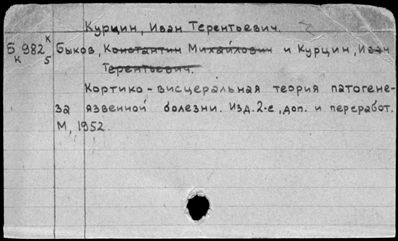 Курцин, Иван Терентьевич.
Б 982 к 5 Быков, Константин Михайлович и Курцин, Иван
к Терентьевич.
Кортико-висцеральная теория патогене-
за язвенной болезни. Изд. 2-е, доп. и переработ.
М, 1952.